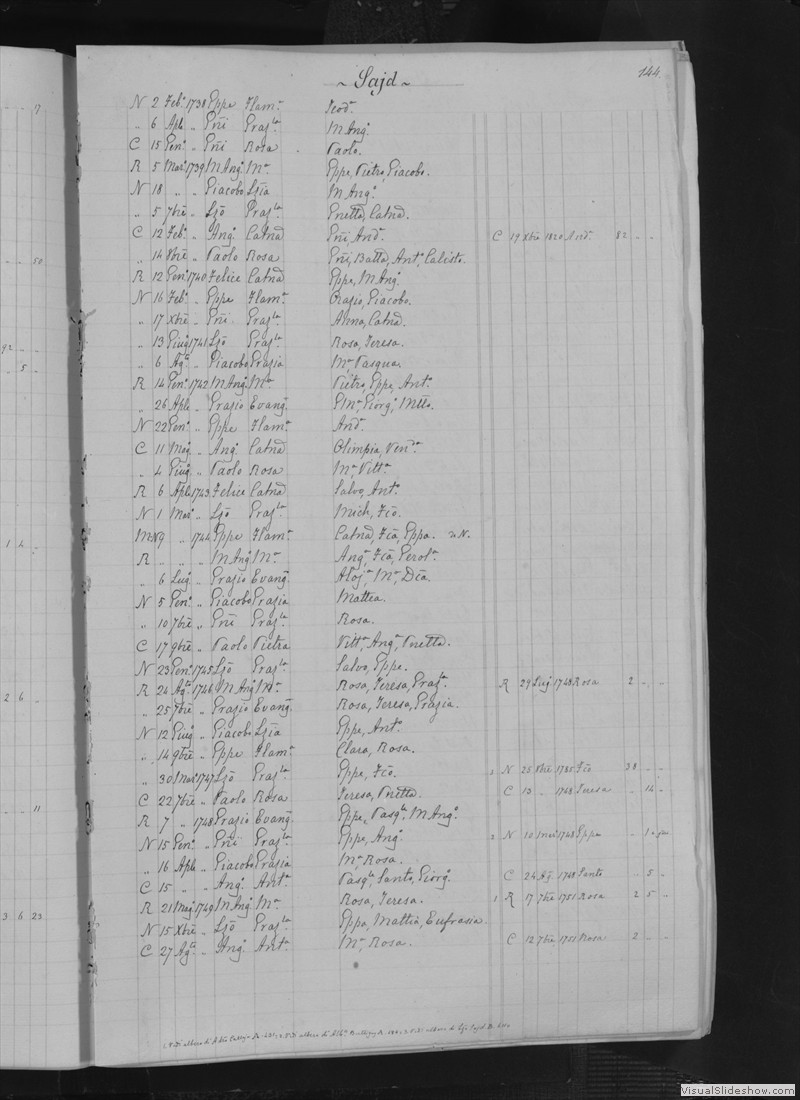 144.
~ Sajd ~
N 2 Feb.o 1738 Gppe Flam.a Teod.a
" 6 Apl. " Gnī Graz.la M Ang.a
C 15 Gen.o " Gnī Rosa Paolo.
R 5 Mar.o 1739 M Ang.o M.a Gppe, Pietro, Giacobo.
N 18 " " Giacobo Ljīa M Ang.o
" 5 7bre " Ljō Graz.la Gnetta, Catna.
C 12 Feb.o " Ang.o Catna Gnī And.a C 19 Xbre 1820 And.a 82 - -
" 14 8bre " Paolo Rosa Gnī, Batta, Ant.o Calisto.
R 12 Gen.o 1740 Felice Catna Gppe, M Ang.o
N 16 Feb.o " Gppe Flam.a Grazio, Giacobo.
" 17 Xbre " Gnī Graz.la Anna, Catna.
" 13 Giug. 1741 Ljō Graz.la Rosa, Teresa.
" 6 Ag.to " Giacobo Grazia M.a Pasqua.
R 14 Gen.o 1742 M Ang.o M.a Pietro, Gppe, Ant.o
" 26 Apl. " Grazio Evang.a Giorg.o Mtto.
N 22 Gen.o " Gppe Flam.a And.a
C 11 Mag. " Ang.o Catna Olimpia, Ven.da
" 4 Giug. " Paolo Rosa M.a Vitt.a
R 6 Apl. 1743 Felice Catna Salvo, Ant.o
N 1 Mar.o " Ljō Graz.la Mich, Fcō.
N 9 " 1744 Gppe Flam.a Catna, Fcā, Gppa.
R " " " M Ang.o M.a Ang.a Fcā, Gerol.a
" 6 Lug. " Grazio Evang.a Aloj.a M.a Dcā.
N 5 Gen.o " Giacobo Grazia Mattia.
" 10 7bre " Gnī Graz.la Rosa.
C 17 9bre " Paolo Pietra Vitt.a Ang.a Gnetta.
N 23 Gen.o 1745 Ljō Graz.la Salvo, Gppe.
R 24 Ag.to 1746 M Ang.o M.a Rosa, Teresa, Graz.a R 29 Lug. 1748 Rosa 2 - -
" 25 7bre " Grazio Evang.a Rosa, Teresa, Grazia.
N 12 Giug. " Giacobo Ljīa Gppe, Ant.o
" 14 9bre " Gppe Flam.a Clara, Rosa.
" 30 Mar.o 1747 Ljō Graz.la Gppe, Fcō. 3 N 25 8bre 1785 Fcō 38 - -
C 22 7bre " Paolo Rosa Teresa, Gnetta. C 13 " 1768 Teresa - 14 -
R 7 " 1748 Grazio Evang.a Gppe, Pasq.le M Ang.o
N 15 Gen.o " Gnī Graz.la Gppe, Ang.o 2 N 10 1748 Gppe
" 16 Apl. " Giacobo Grazia M.a Rosa.
C 15 " " Ang.o Ant.a Pasq.le Santo, Giorg.o C 24 Ag. 1748 Santo - 5 -
R 21 Mag. 1749 M Ang.o M.a Rosa, Teresa. 1 R 17 7bre 1751 Rosa 2 5 -
N 15 Xbre " Ljō Graz.la Gppa, Mattia, Eufrasia.
C 27 Ag.to " Ang.o Ant.a M.a Rosa. C 12 7bre 1751 Rosa 2 - -
17
50
92
5
1
2 6
11
3 6 23
VisualSlideshow.com